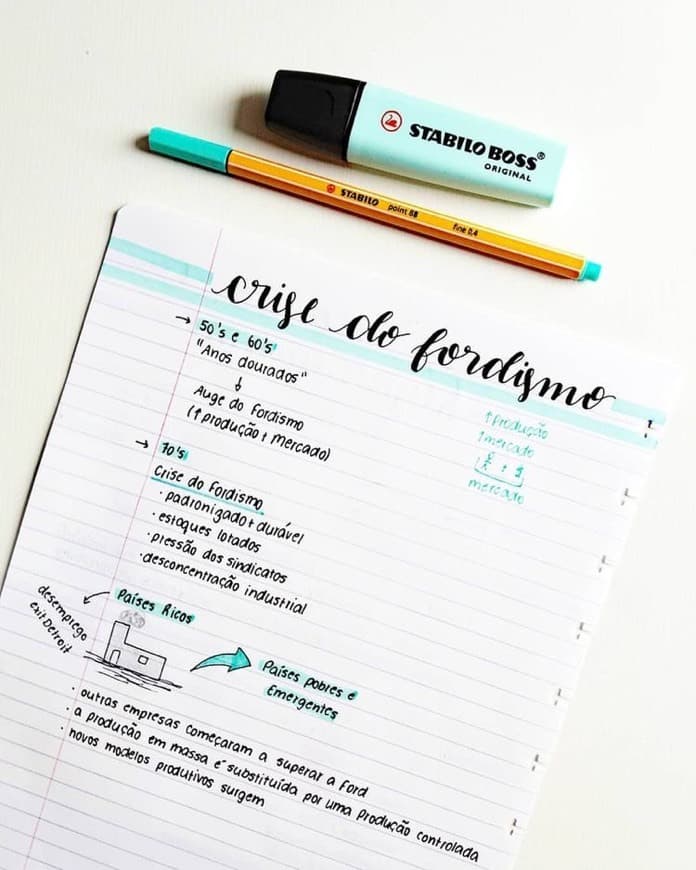 STABILO BOSS®
ORIGINAL
STABILO point 88 fine 0,4
crise do fordismo
→ 50's e 60's
"Anos dourados"
↓
Auge do Fordismo
(↑ produção + mercado)
↑ Produção
↑ mercado
mercado
→ 70's
Crise do Fordismo
· padronizado + durável
· estoques lotados
· pressão dos sindicatos
· desconcentração industrial
Países Ricos
desemprego
Detroit
Países pobres e
Emergentes
· outras empresas começaram a superar a Ford
· a produção em massa é substituída por uma produção controlada
· novos modelos produtivos surgem